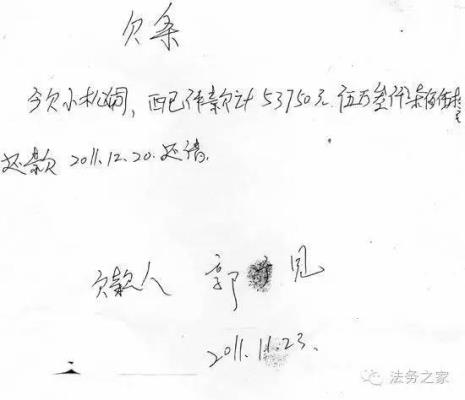 欠条
今欠小松饲,西已件款计53750元.伍万叁仟柒佰伍拾元
还款 2011.12.20.还清.
欠款人 郭 见
2011.11.23.
法务之家